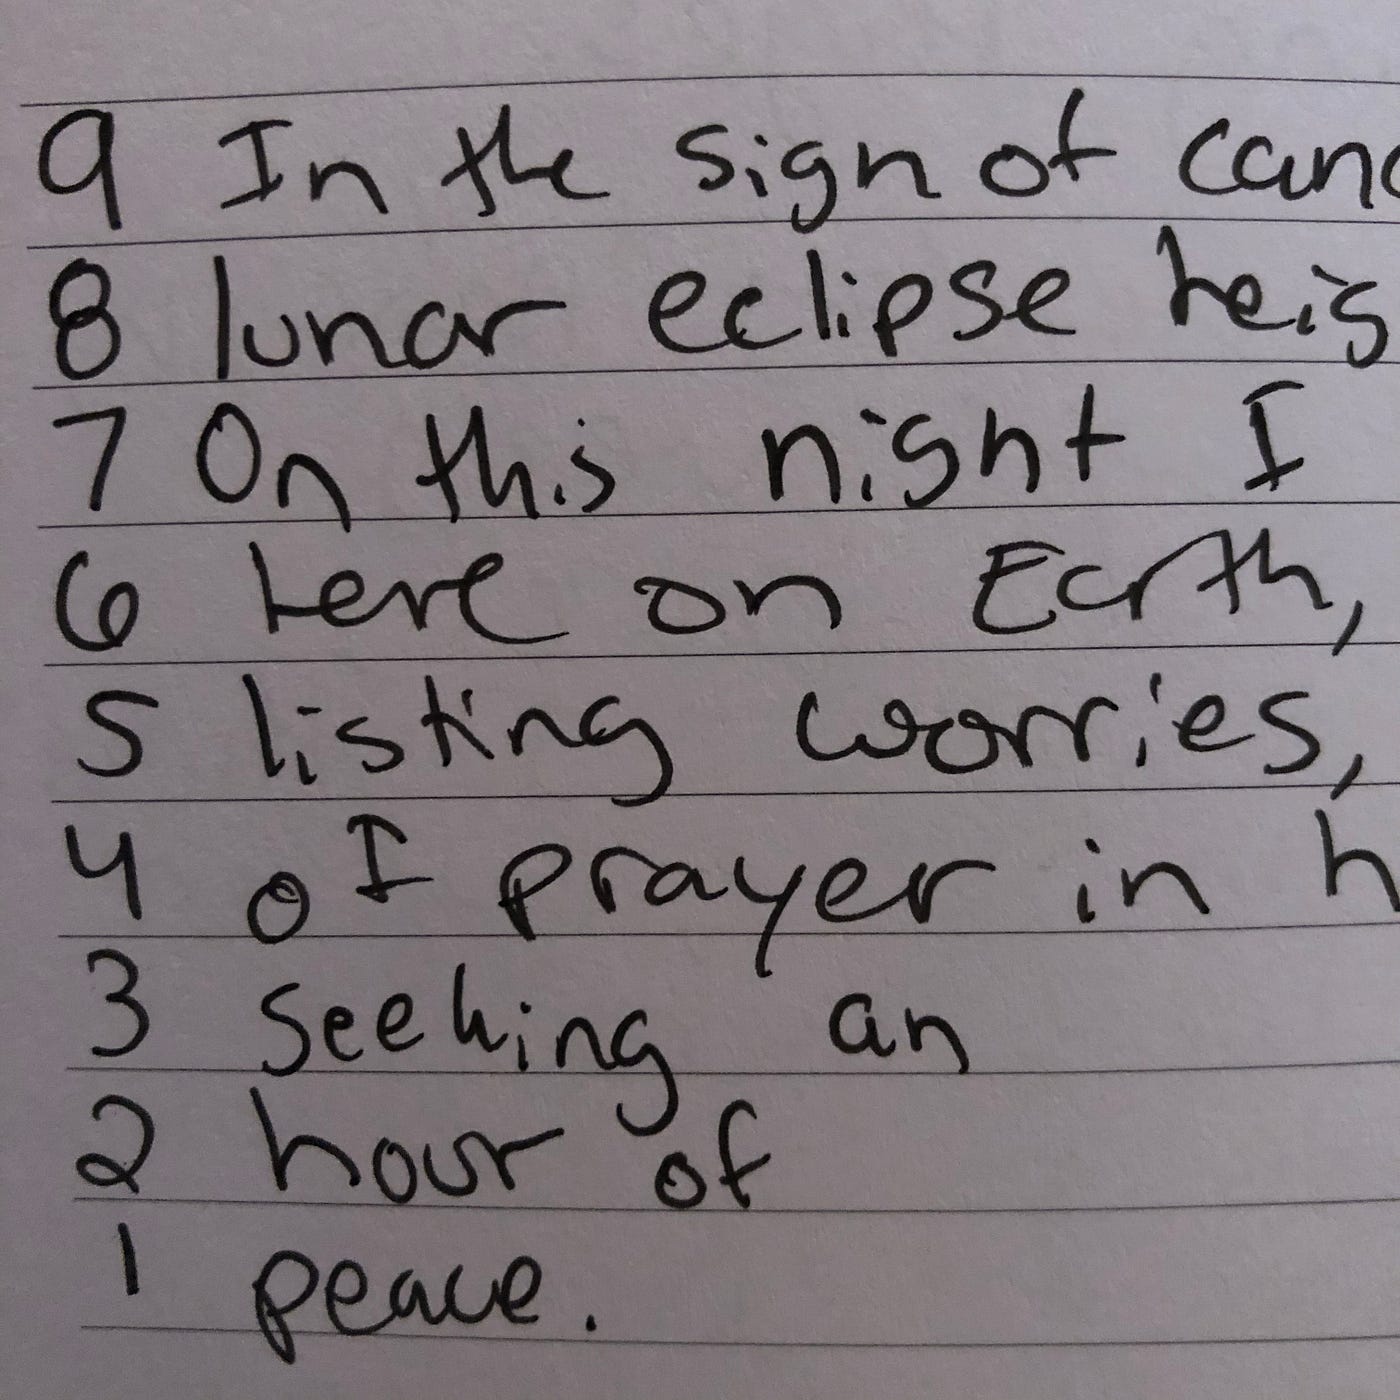 9 In the sign of canc
8 lunar eclipse heig
7 On this night I
6 here on Earth,
5 listing worries,
4 of prayer in h
3 seeking an
2 hour of
1 peace.